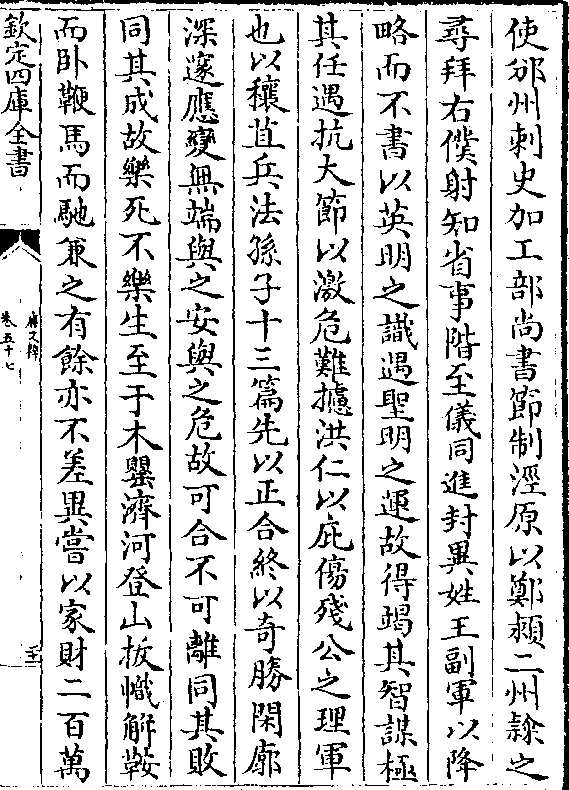 使邠州刺史加工部尚書節制涇原以鄭潁二州隸之
尋拜右僕射知省事階至儀同進封異姓王副軍以降
略而不書以英明之識遇聖明之運故得竭其智謀極
其任遇抗大節以激危難攄洪仁以庇傷殘公之理軍
也以穰苴兵法孫子十三篇先以正合終以奇勝閑廓
深邃應變無端與之安與之危故可合不可離同其敗
同其成故樂死不樂生至于木罌濟河登山拔幟解鞍
而卧鞭馬而馳兼之有餘亦不差異嘗以家財二百萬
欽定四庫全書
卷五十七